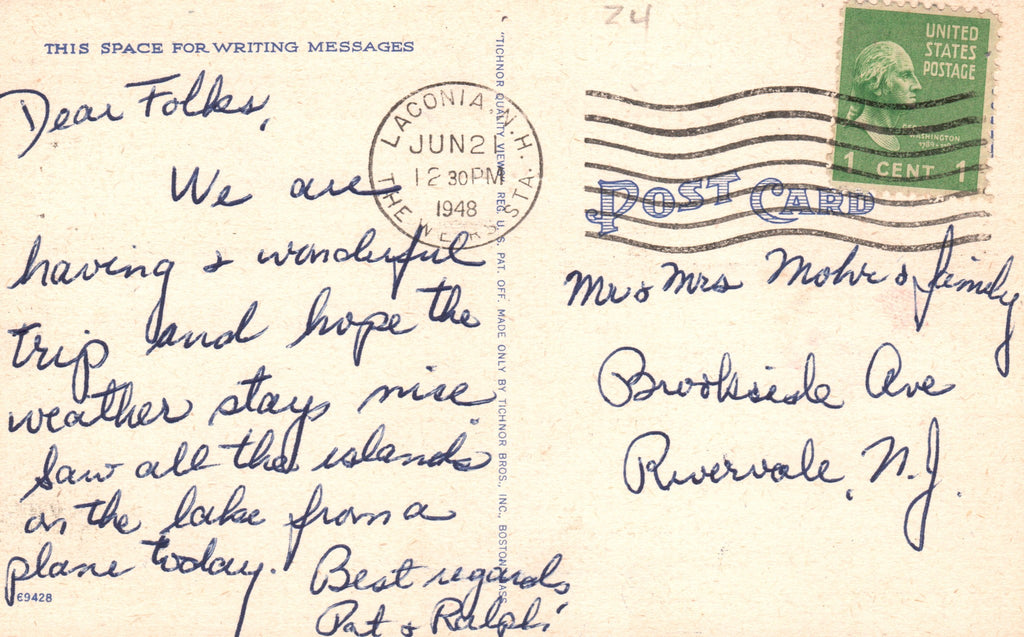 THIS SPACE FOR WRITING MESSAGES
Dear Folks,
We are
having a wonderful
trip and hope the
weather stays nice.
Saw all the islands
on the lake from a
plane today.
Best regards,
Pat & Ralph
69428
"TICHNOR QUALITY VIEWS," REG. U. S. PAT. OFF. MADE ONLY BY TICHNOR BROS., INC., BOSTON, MASS.
LACONIA, N.H.
JUN 21
12 30 PM
1948
THE WEIRS STA.
24
UNITED
STATES
POSTAGE
WASHINGTON
1 CENT 1
POST CARD
Mr & Mrs Mohr & family
Brookside Ave
Rivervale, N.J.